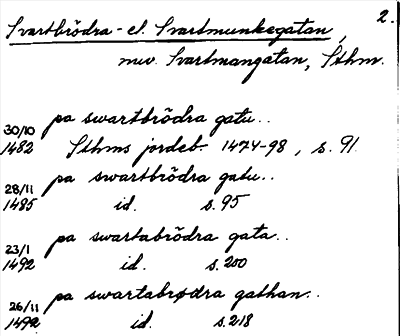 2.
Svartbrödra- el. Svartmunkegatan,
nuv. Svartmangatan, Sthm.
30/10 pa swartbrödra gatu..
1482 Sthms jordeb. 1474-98, s. 91
28/11 pa swartbrödra gatu..
1485 id. s. 95
23/1 pa swartabrödra gata..
1492 id. s. 200
26/11 pa swartabrødra gathan..
1492 id. s. 218